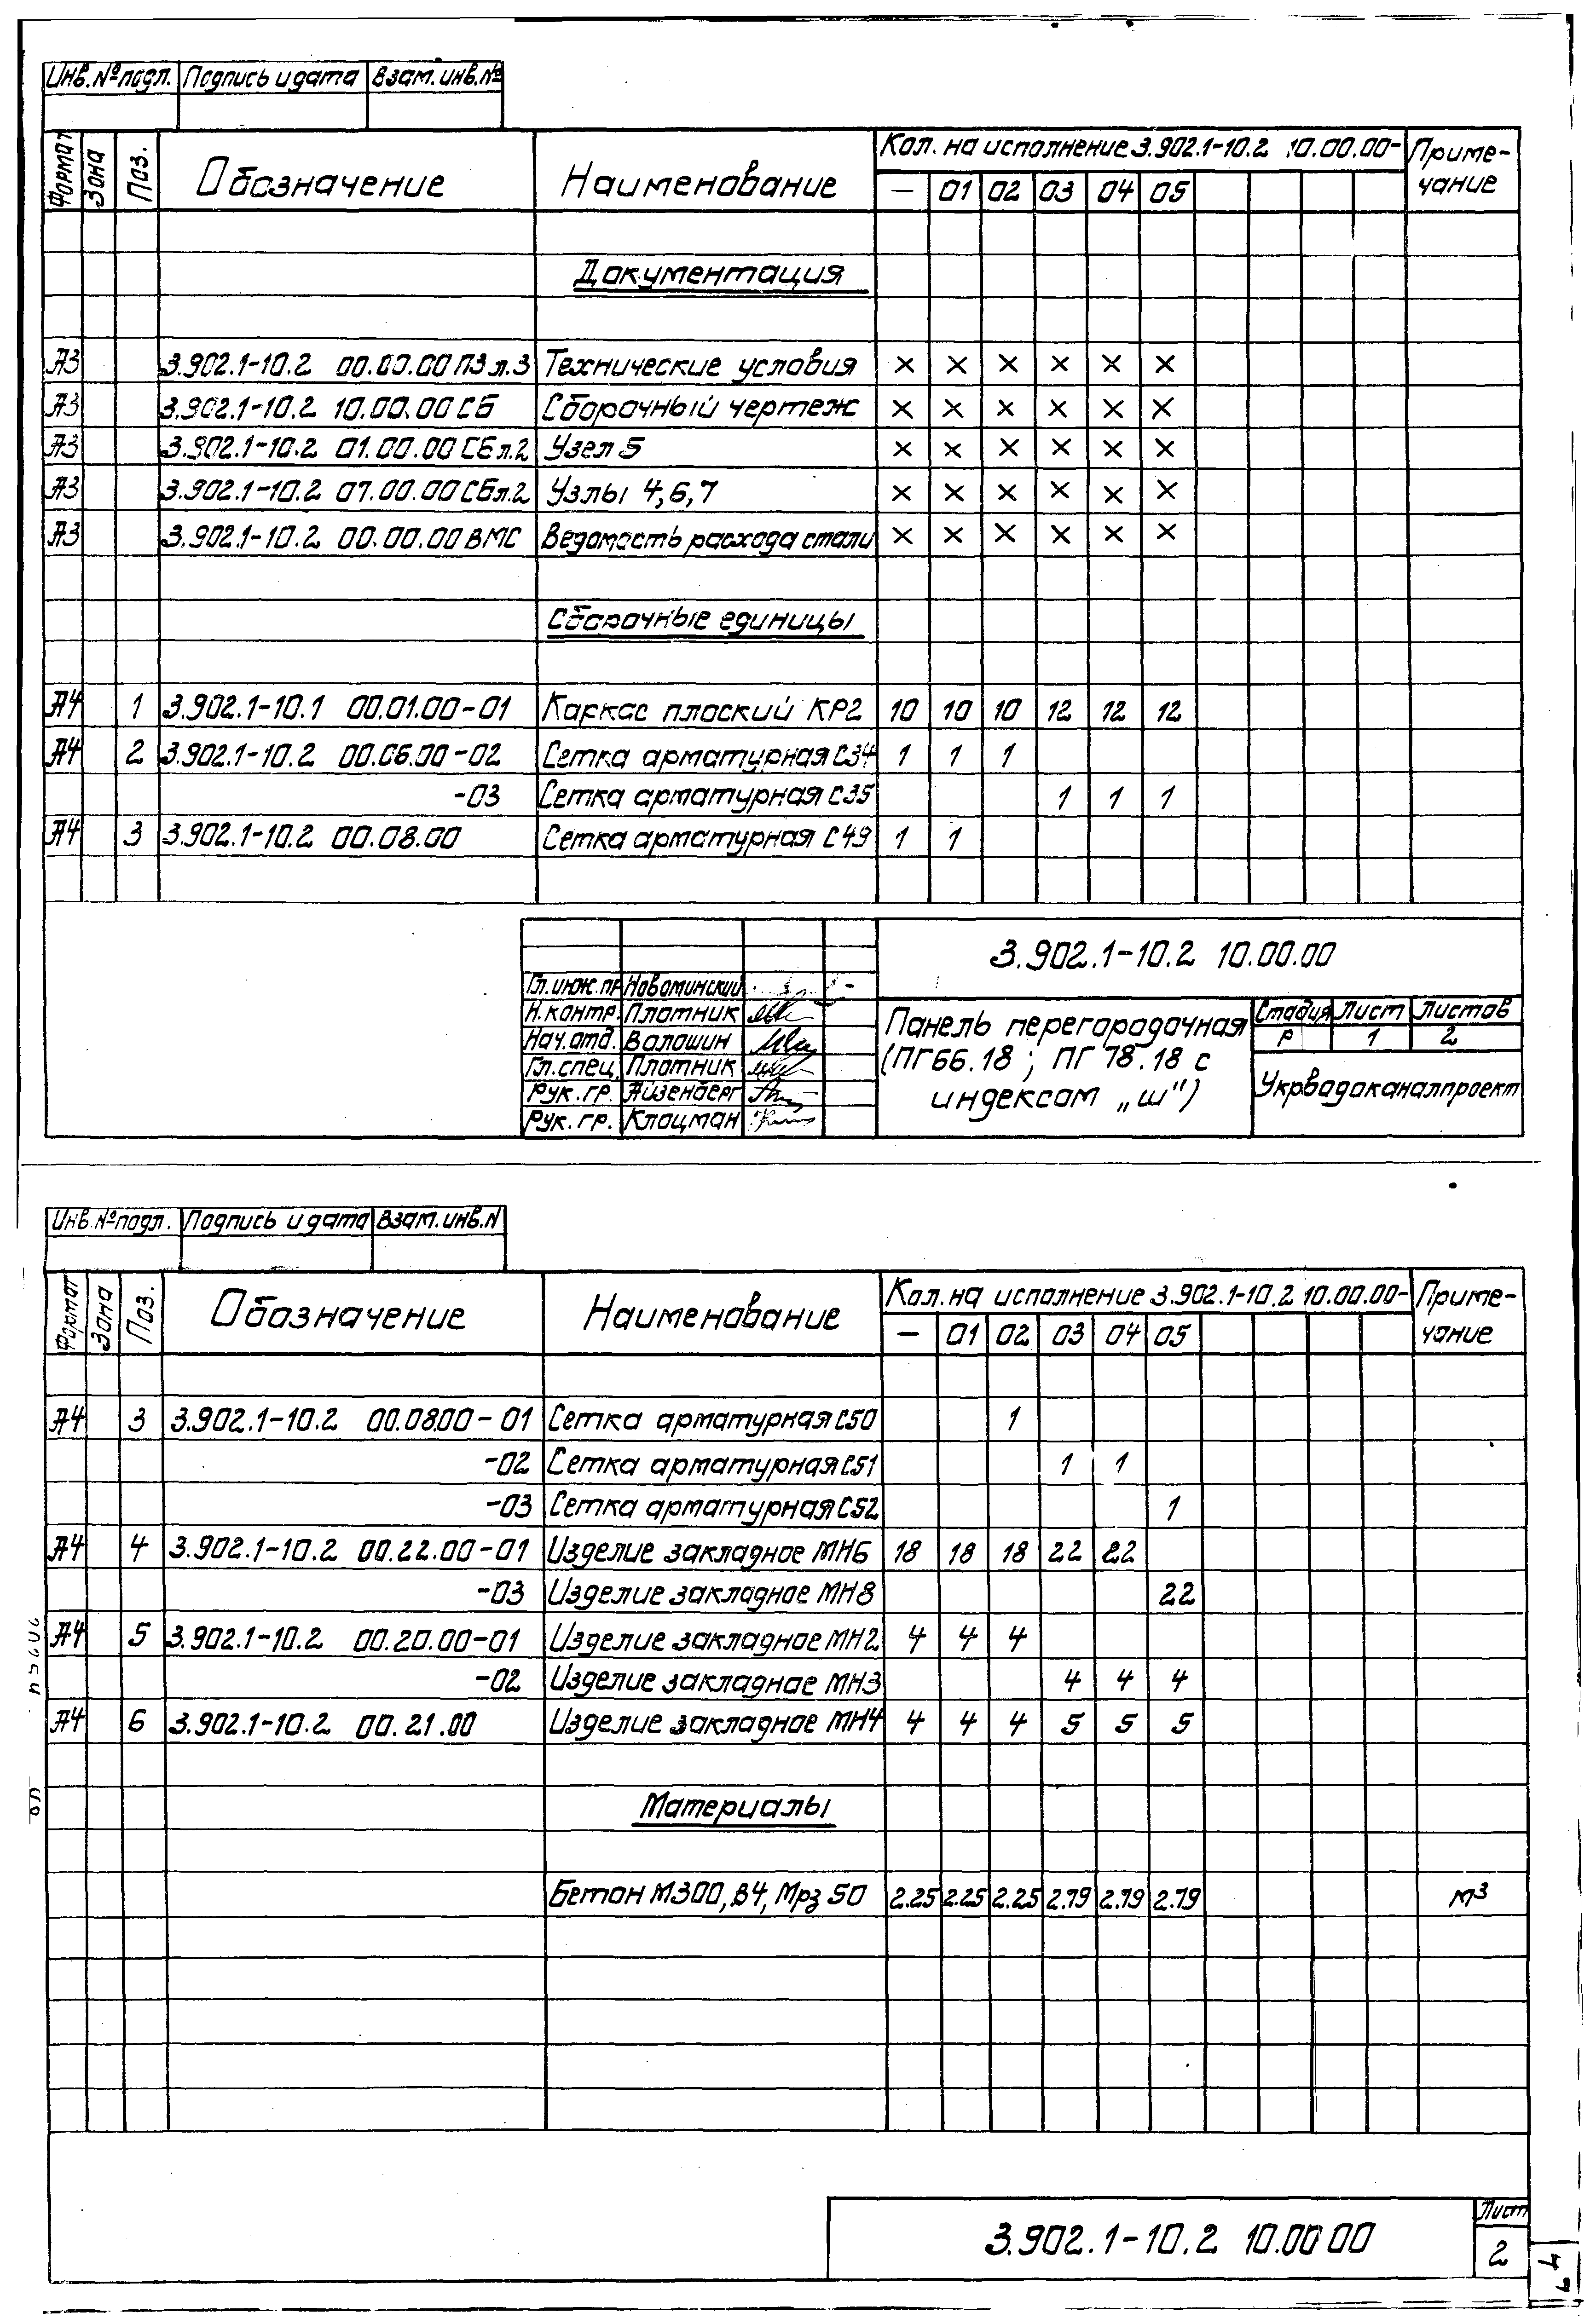 Инв.№подл. Подпись и дата Взам.инв.№
Формат Зона Поз. Обозначение Наименование Кол. на исполнение 3.902.1-10.2 10.00.00- Приме-
чание
— 01 02 03 04 05
Документация
А3 3.902.1-10.2 00.00.00 ПЗ л.3 Технические условия × × × × × ×
А3 3.902.1-10.2 10.00.00 СБ Сборочный чертеж × × × × × ×
А3 3.902.1-10.2 01.00.00 СБ л.2 Узел 5 × × × × × ×
А3 3.902.1-10.2 07.00.00 СБ л.2 Узлы 4,6,7 × × × × × ×
А3 3.902.1-10.2 00.00.00 ВМС Ведомость расхода стали × × × × × ×
Сборочные единицы
А4 1 3.902.1-10.1 00.01.00-01 Каркас плоский КР2 10 10 10 12 12 12
А4 2 3.902.1-10.2 00.06.00-02 Сетка арматурная С34 1 1 1
-03 Сетка арматурная С35 1 1 1
А4 3 3.902.1-10.2 00.08.00 Сетка арматурная С49 1 1
3.902.1-10.2 10.00.00
Гл.инж.пр Новоминский
Н.контр. Плотник
Нач.отд. Волошин
Гл.спец. Плотник
Рук.гр. Айзенберг
Рук.гр. Клоцман
Панель перегородочная
(ПГ66.18; ПГ78.18 с
индексом „ш")
Стадия Лист Листов
Р 1 2
Укрводоканалпроект
Инв.№подл. Подпись и дата Взам.инв.N
Формат Зона Поз. Обозначение Наименование Кол.на исполнение 3.902.1-10.2 10.00.00- Приме-
чание
— 01 02 03 04 05
А4 3 3.902.1-10.2 00.0800-01 Сетка арматурная С50 1
-02 Сетка арматурная С51 1 1
-03 Сетка арматурная С52 1
А4 4 3.902.1-10.2 00.22.00-01 Изделие закладное МН6 18 18 18 22 22
-03 Изделие закладное МН8 22
А4 5 3.902.1-10.2 00.20.00-01 Изделие закладное МН2 4 4 4
-02 Изделие закладное МН3 4 4 4
А4 6 3.902.1-10.2 00.21.00 Изделие закладное МН4 4 4 4 5 5 5
Материалы
Бетон М300, В4, Мрз 50 2.25 2.25 2.25 2.79 2.79 2.79 м³
3.902.1-10.2 10.00 00
Лист
2